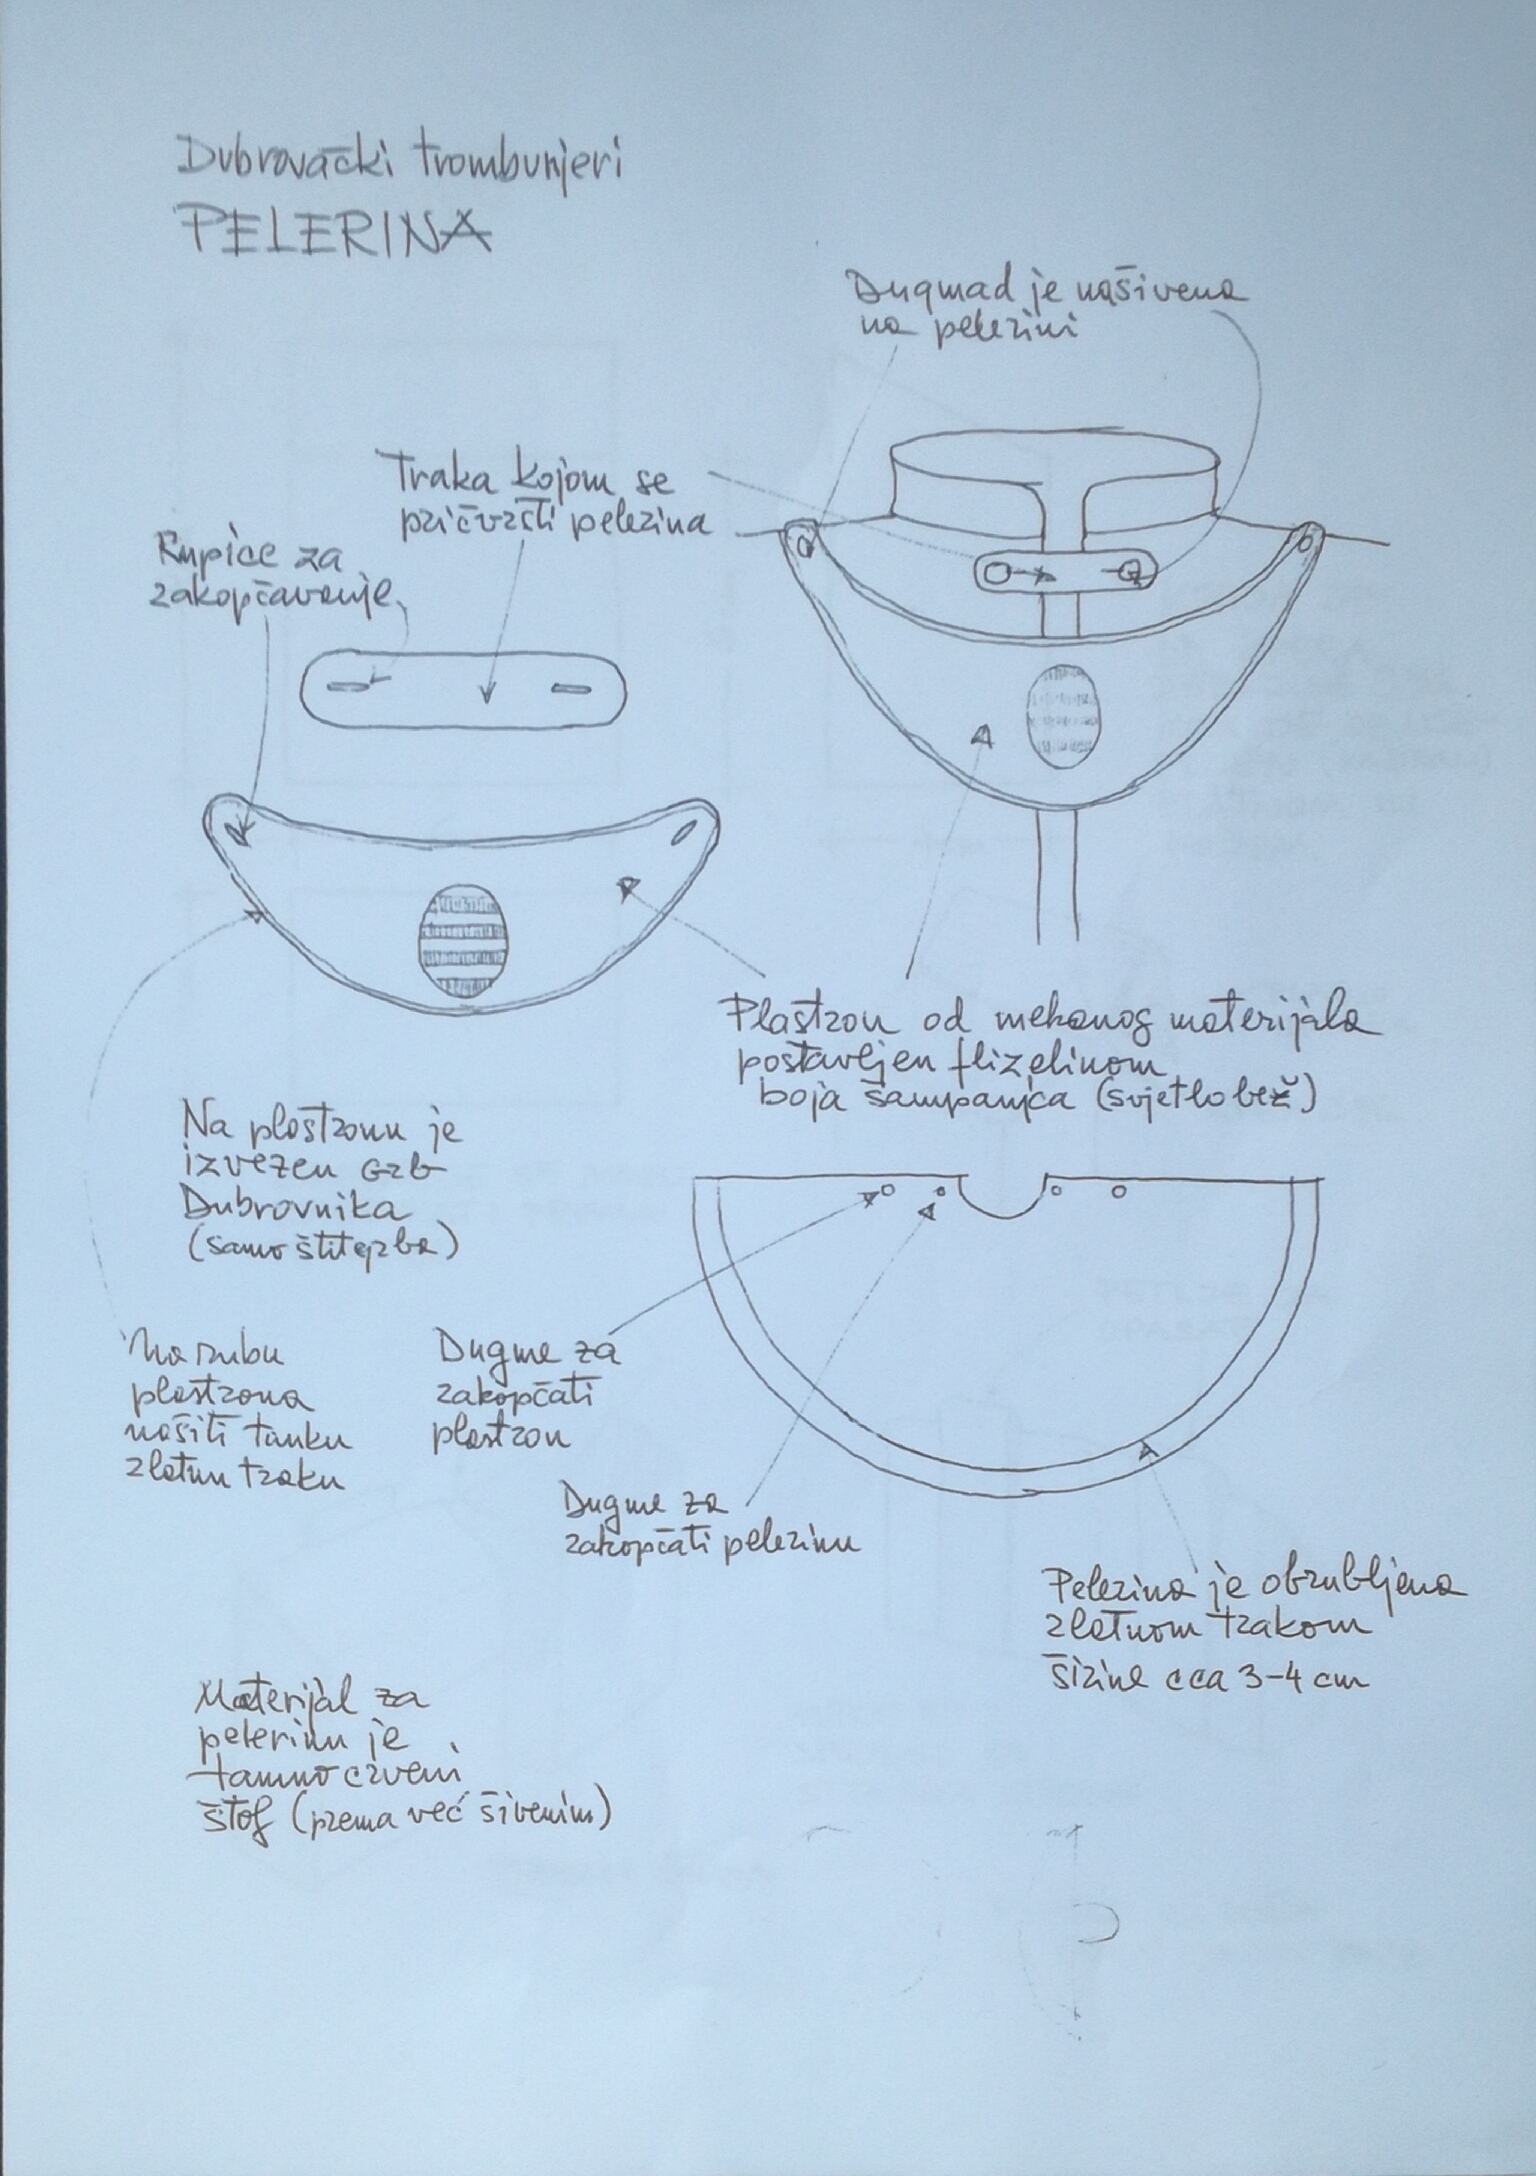 Dubrovački trombunjeri
PELERINA
Dugmad je našivena
na pelerini
Traka kojom se
pričvrsti pelerina
Rupice za
zakopčavanje
Plastron od mekanog materijala
postavljen flizelinom
boja šampanjca (svjetlo bež)
Na plastronu je
izvezen GRB
Dubrovnika
(samo štit grba)
Na rubu
plastrona
našiti tanku
zlatnu traku
Dugme za
zakopčati
plastron
Dugme za
zakopčati pelerinu
Pelerina je obrubljena
zlatnom trakom
širine cca 3-4 cm
Materijal za
pelerinu je
tamno crveni
štof (prema već šivenim)